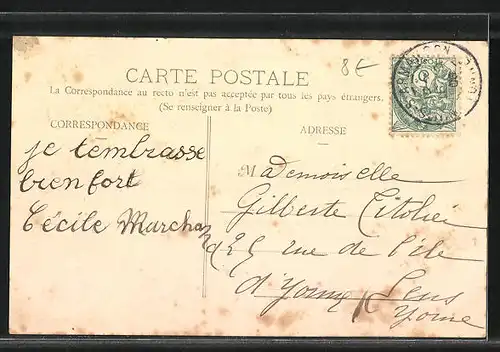 8€
CARTE POSTALE
La Correspondance au recto n'est pas acceptée par tous les pays étrangers.
(Se renseigner à la Poste)
CORRESPONDANCE
ADRESSE
je t'embrasse
bien fort
Cécile Marchand
Mademoiselle
Gilberte
25 rue de l'île
d'Yonne Sens
Yonne